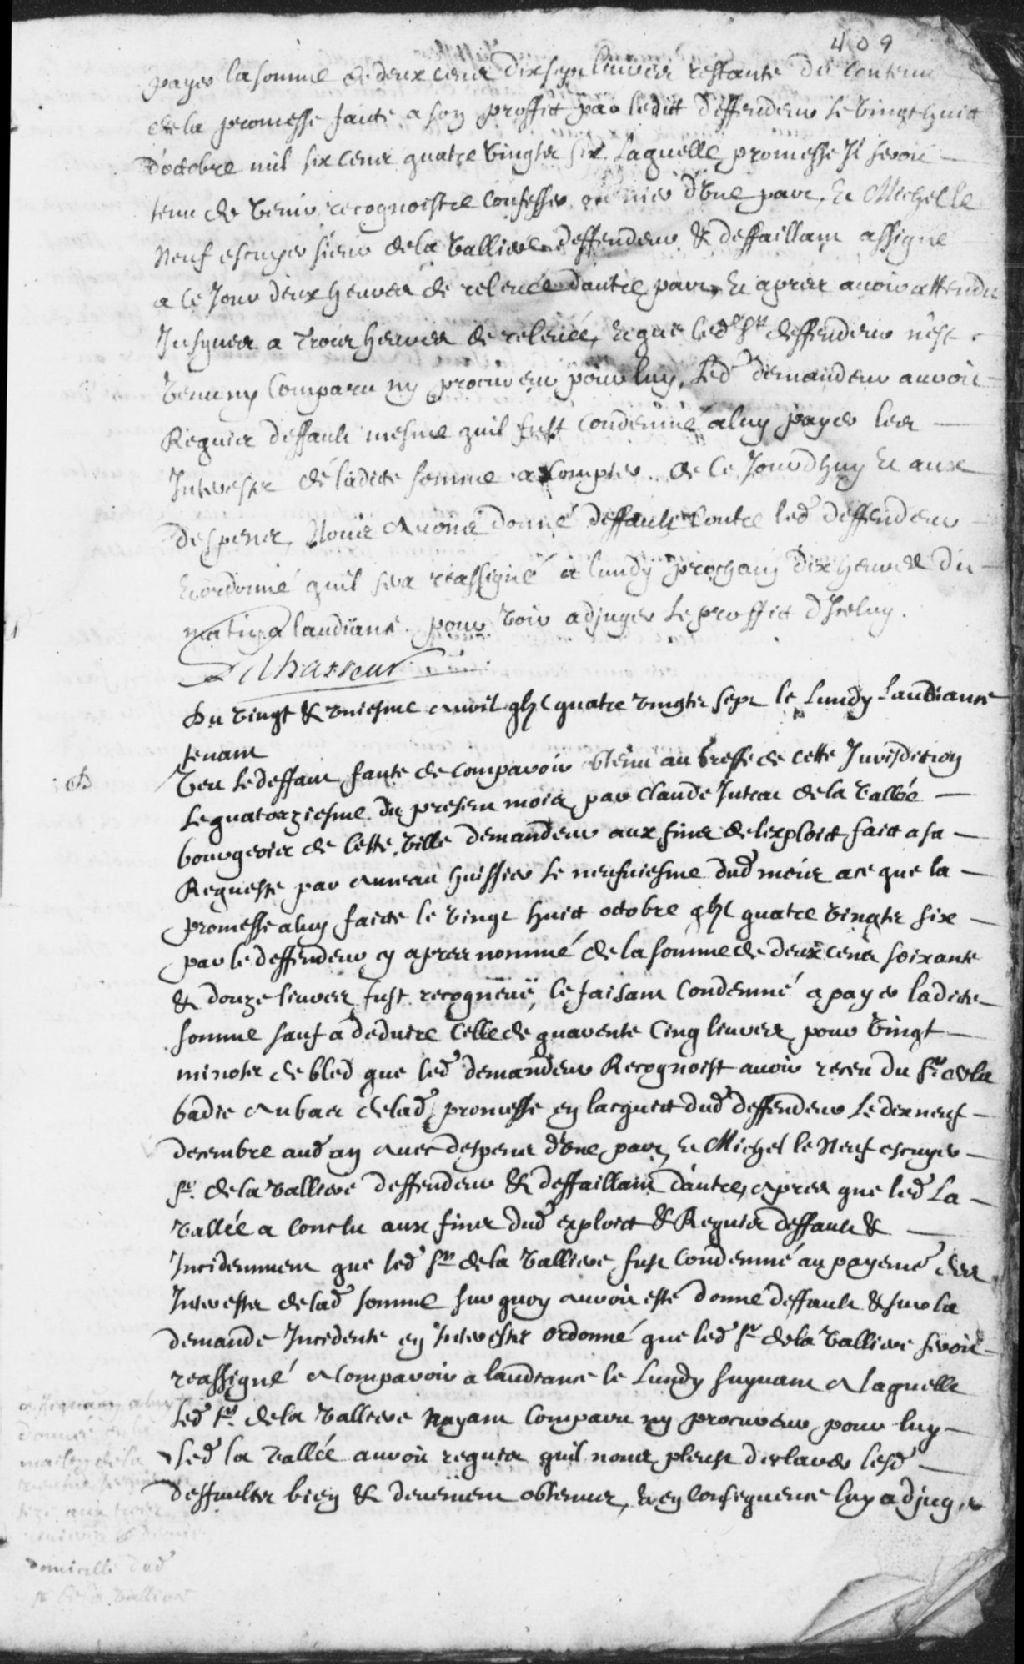 409
payer la somme de deux cens dix sept livres restante du contenu
de la promesse faite a son proffit par ledit deffendeur le vingt huit
d'octobre mil six cens quatre vingts six, laquelle promesse Il seroit
tenu de venir recognoistre confesser ou nier d'Une part, Et Michel le
Neuf escuyer sieur de la Valliere deffendeur & deffaillant assigné
a ce Jour deux heures de relevée d'autre part, Et apres avoir attendu
Jusques a trois heures de relevée, Et que led sr deffendeur n'est
venu ny comparu ny procureur pour luy, Led demandeur auroit
Requis deffault mesme quil fust condemné a luy payer les
Interests de ladite somme a compter de ce Jourdhuy Et aux
despens, Nous avons donné deffault contre led deffendeur
Et ordonné quil sera reassigné a lundy prochain dix heures du
matin a laudiance pour voir adjuger le proffit d'Iceluy.
Du vingt & Uniesme avril gbl quatre vingts sept le Lundy Laudiance
tenant
Veu le deffaut faute de comparoir obtenu au greffe de cette Jurisdiction
Le quatorziesme du present mois par Claude Juteau de la Vallée
bourgeois de cette Ville demandeur aux fins de lexploit fait a sa
Requeste par Ameau huissier le neufviesme dud mois a ce que la
promesse a luy faite le vingt huit octobre gbl quatre vingts six
par le deffendeur cy apres nommé de la somme de deux cens soixante
& douze livres fust recognüe, ce faisant condemné a payer ladite
somme sauf a déduire celle de quarente cinq livres pour Vingt
minots de bled que led demandeur Recognoist avoir receu du sr de la
badie au bas de lad promesse en lacquit dud deffendeur Le dix neuf
decembre aud an avec despens d'Une part, Et Michel le Neuf escuyer
sr de la Valliere deffendeur & deffaillant d'autre, apres que led La
Vallée a conclu aux fins dud exploit & Requis deffault &
Incidemment que led sr de la Valliere fust condemné au payemt des
Interests de lad somme sur quoy auroit esté donné deffault & sur la
demande Incidente en Interests ordonné que led sr de la Valliere seroit
reassigné a comparoir a laudiance le Lundy suyvant a laquelle
Led sr de la Valliere nayant comparu ny procureur pour luy
led la Vallée auroit requis quil nous pleust declarer lesd
deffaults bien & deuement obtenus, Et en consequence luy adjuger
domicille dud
sr de la Valliere